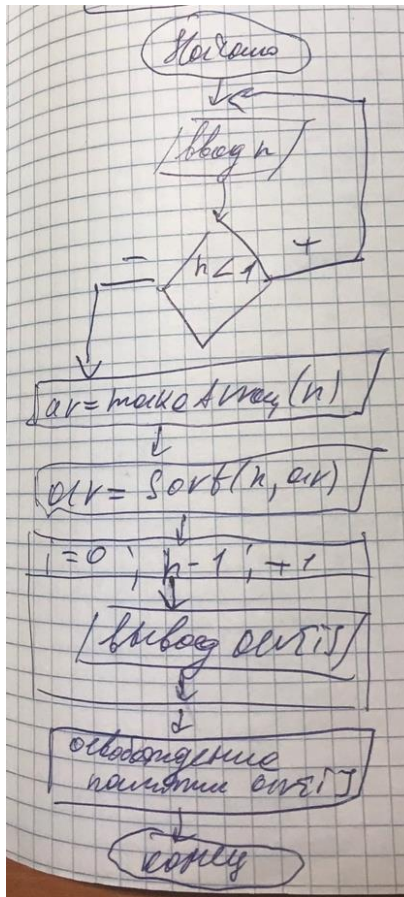 Начало
ввод n
n < 1
+
-
ar = makeArray (n)
ar = Sort(n, ar)
i=0 ; n-1 ; +1
вывод ar[i]
освобождение
памяти ar[i]
конец